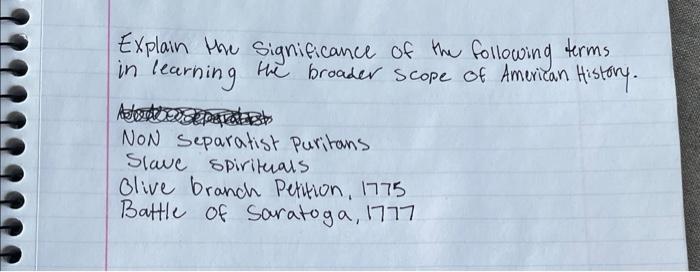 Explain the significance of the following terms
in learning the broader scope of American History.
NON Separatist Puritans
Slave spirituals
Olive branch Petition, 1775
Battle of Saratoga, 1777